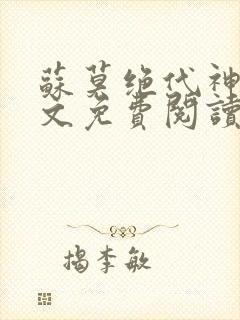 蘇莫绝代神
文免費閱讀
揭李敏